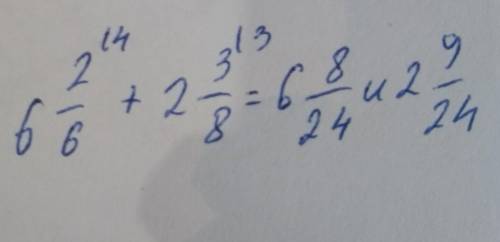 6 2/6 ⁽⁴ + 2 3/8 ⁽³ = 6 8/24 и 2 9/24